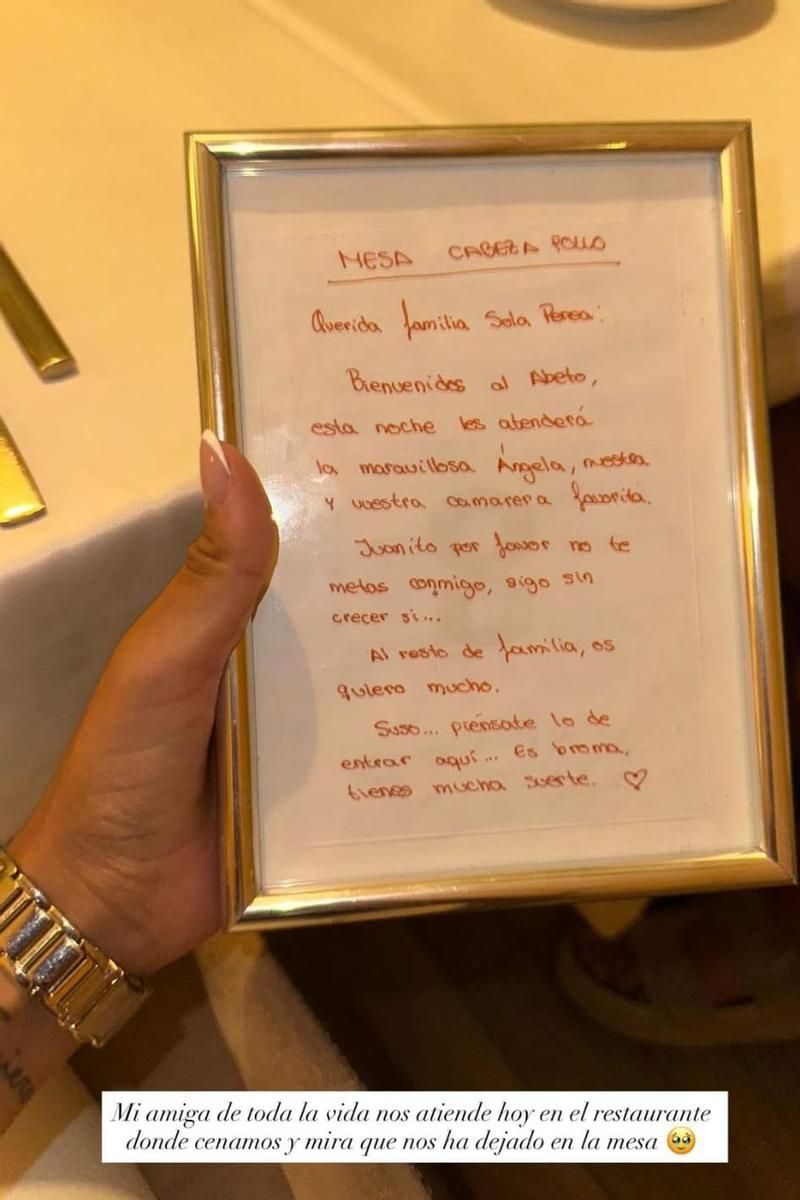 MESA CABEZA POLLO
Querida familia Sola Perea:
Bienvenidos al Abeto,
esta noche les atenderá
la maravillosa Ángela, nuestra
y vuestra camarera favorita.
Juanito por favor no te
metas conmigo, sigo sin
crecer si...
Al resto de familia, os
quiero mucho.
Suso... piénsate lo de
entrar aquí... Es broma,
tienes mucha suerte. ♡
Mi amiga de toda la vida nos atiende hoy en el restaurante
donde cenamos y mira que nos ha dejado en la mesa 🥹